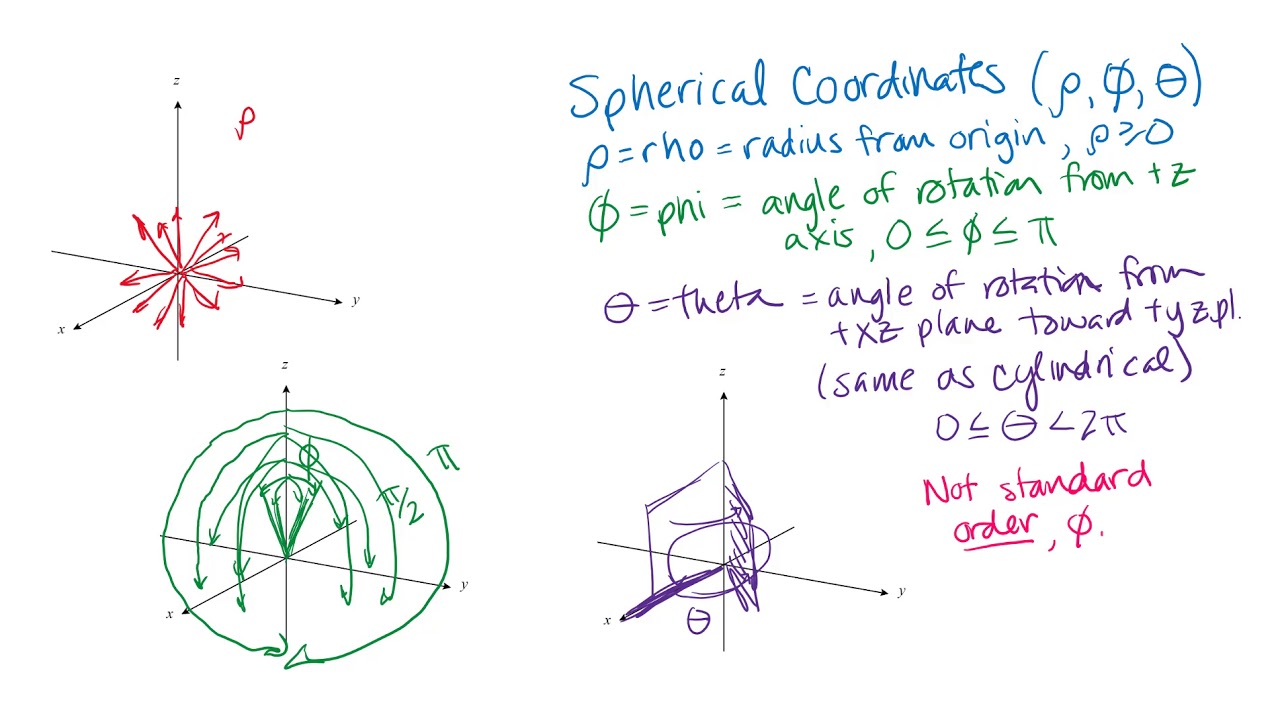 Spherical Coordinates (ρ, ϕ, θ)
ρ = rho = radius from origin, ρ ≥ 0
ϕ = phi = angle of rotation from +z
axis, 0 ≤ ϕ ≤ π
θ = theta = angle of rotation from
+xz plane toward +yz pl.
(same as cylindrical)
0 ≤ θ < 2π
Not standard
order, ϕ.
z
ρ
y
x
z
ϕ
π
π/2
y
x
z
y
x
θ